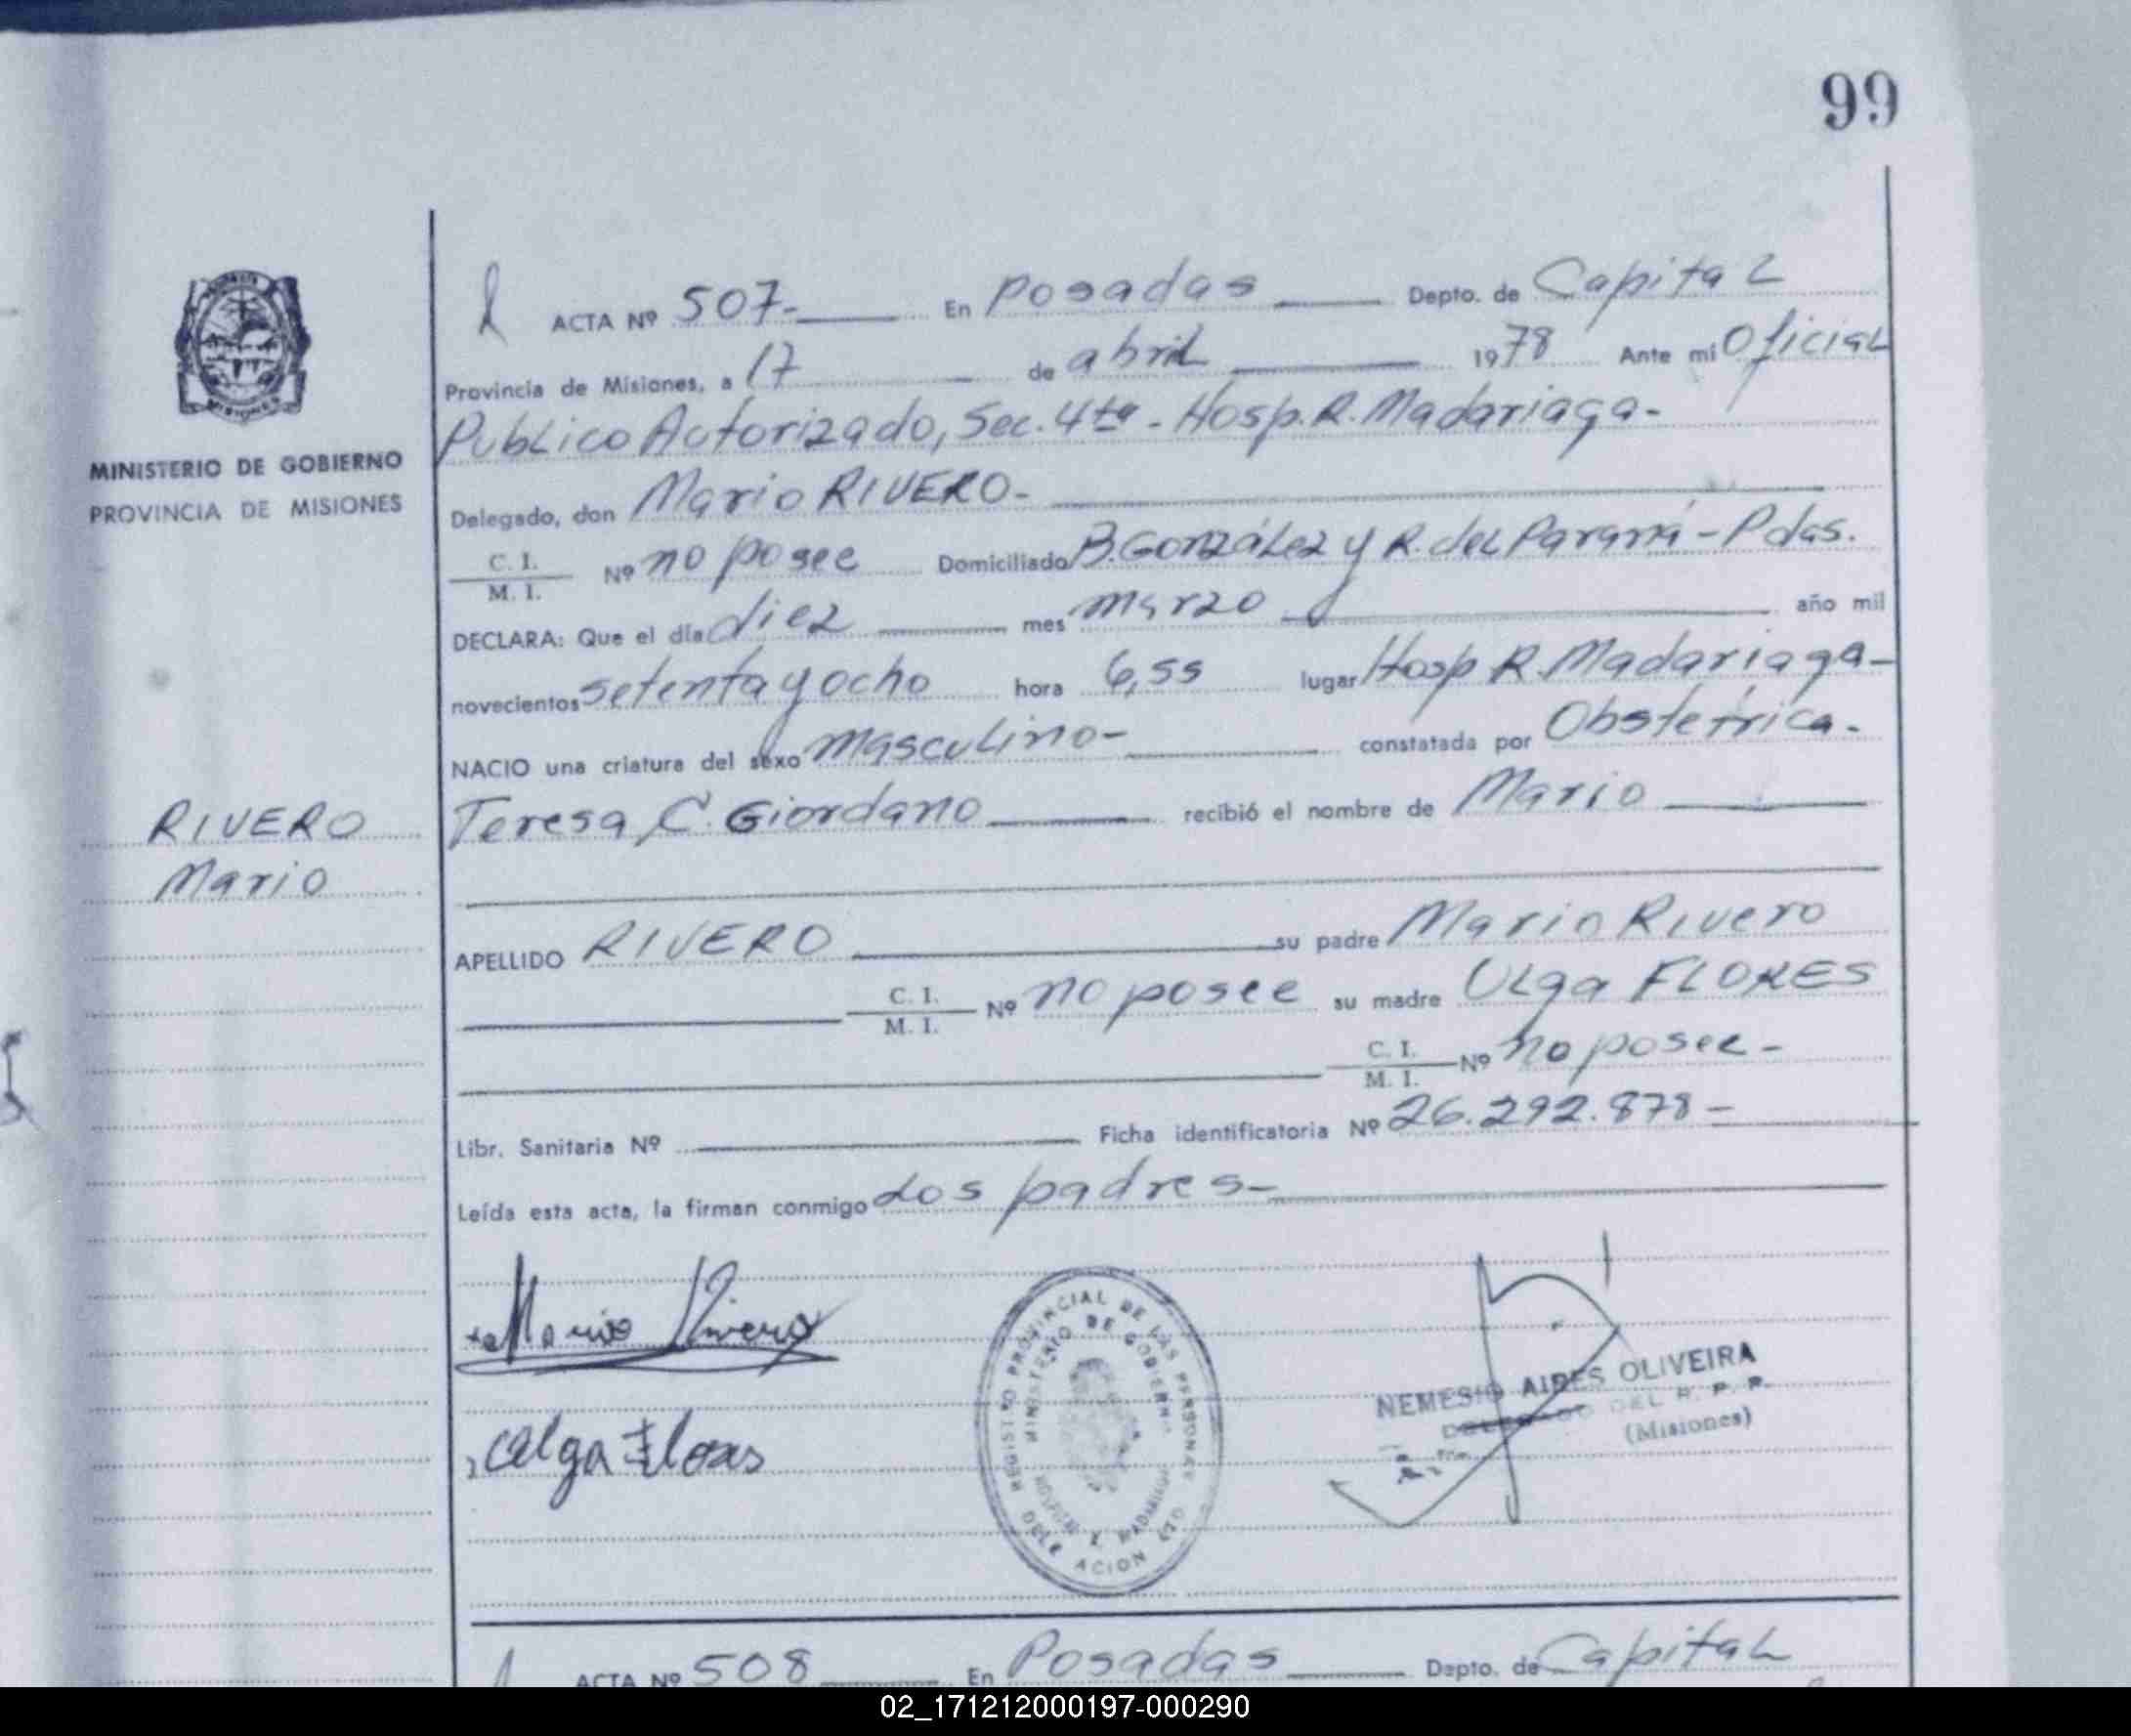 99
ACTA Nº 507- En Posadas Depto. de Capital
Provincia de Misiones, a 17 de abril 1978 Ante mi Oficial
Publico Autorizado, Sec. 4ta - Hosp. R. Madariaga-
MINISTERIO DE GOBIERNO
PROVINCIA DE MISIONES
Delegado, don Mario RIVERO-
C. I.
M. I.
Nº no posee Domiciliado B. González y R. del Paraná - Pdas.
DECLARA: Que el día diez mes marzo año mil
novecientos setenta y ocho hora 6,55 lugar Hosp R. Madariaga-
NACIO una criatura del sexo masculino- constatada por Obstetrica-
RIVERO
Mario
Teresa C. Giordano recibió el nombre de Mario
APELLIDO RIVERO su padre Mario Rivero
C. I.
M. I.
Nº no posee su madre Olga FLORES
C. I.
M. I.
Nº no posee-
Libr. Sanitaria Nº Ficha identificatoria Nº 26.292.878-
Leída esta acta, la firman conmigo los padres-
Mario Rivero
REGISTRO PROVINCIAL DE LAS PERSONAS
MINISTERIO DE GOBIERNO
NEMESIO AIRES OLIVEIRA
DELEGADO DEL R. P. P.
(Misiones)
MISIONES
ACTA Nº 508 En Posadas Depto. de Capital
02_171212000197-000290